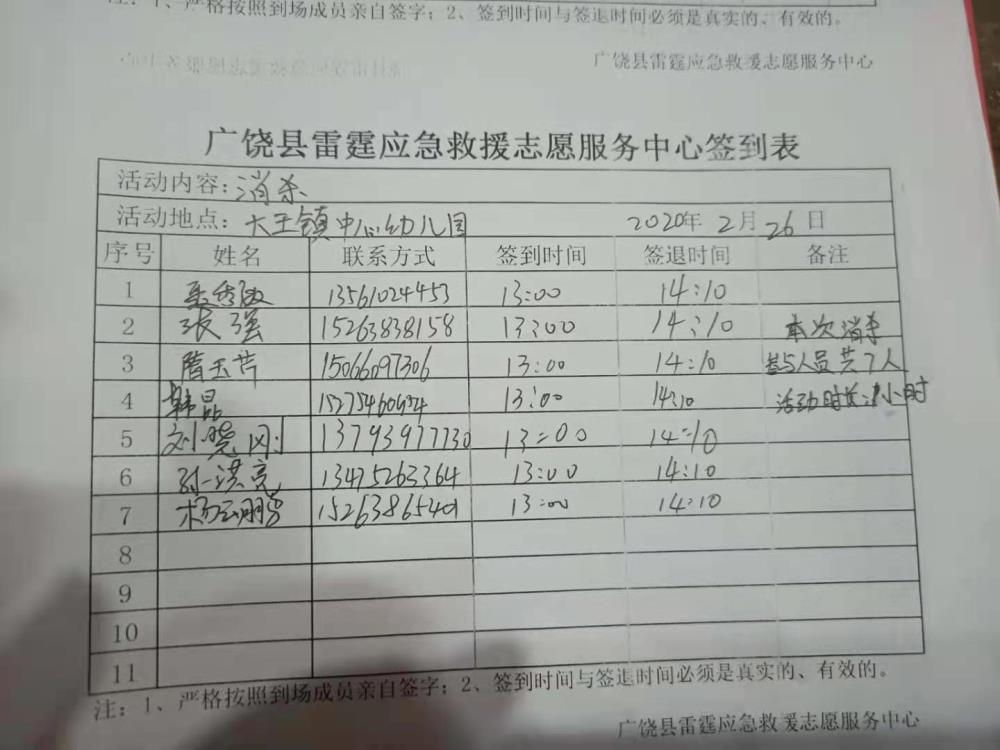 注：1、严格按照到场成员亲自签字；2、签到时间与签退时间必须是真实的、有效的。
广饶县雷霆应急救援志愿服务中心
广饶县雷霆应急救援志愿服务中心签到表
活动内容：消杀
活动地点：大王镇中心幼儿园 2020年 2月 26日
序号 姓名 联系方式 签到时间 签退时间 备注
1 13561024453 13:00 14:10
2 张强 15263838158 13:00 14:10 本次消杀
3 隋玉芹 15066097306 13:00 14:10 参与人员共7人
4 韩晶 13:00 14:10 活动时长:1小时
5 刘晓刚 13793977730 13:00 14:10
6 孙洪亮 13475263364 13:00 14:10
7 杨云鹏 15263865401 13:00 14:10
8
9
10
11
注：1、严格按照到场成员亲自签字；2、签到时间与签退时间必须是真实的、有效的。
广饶县雷霆应急救援志愿服务中心